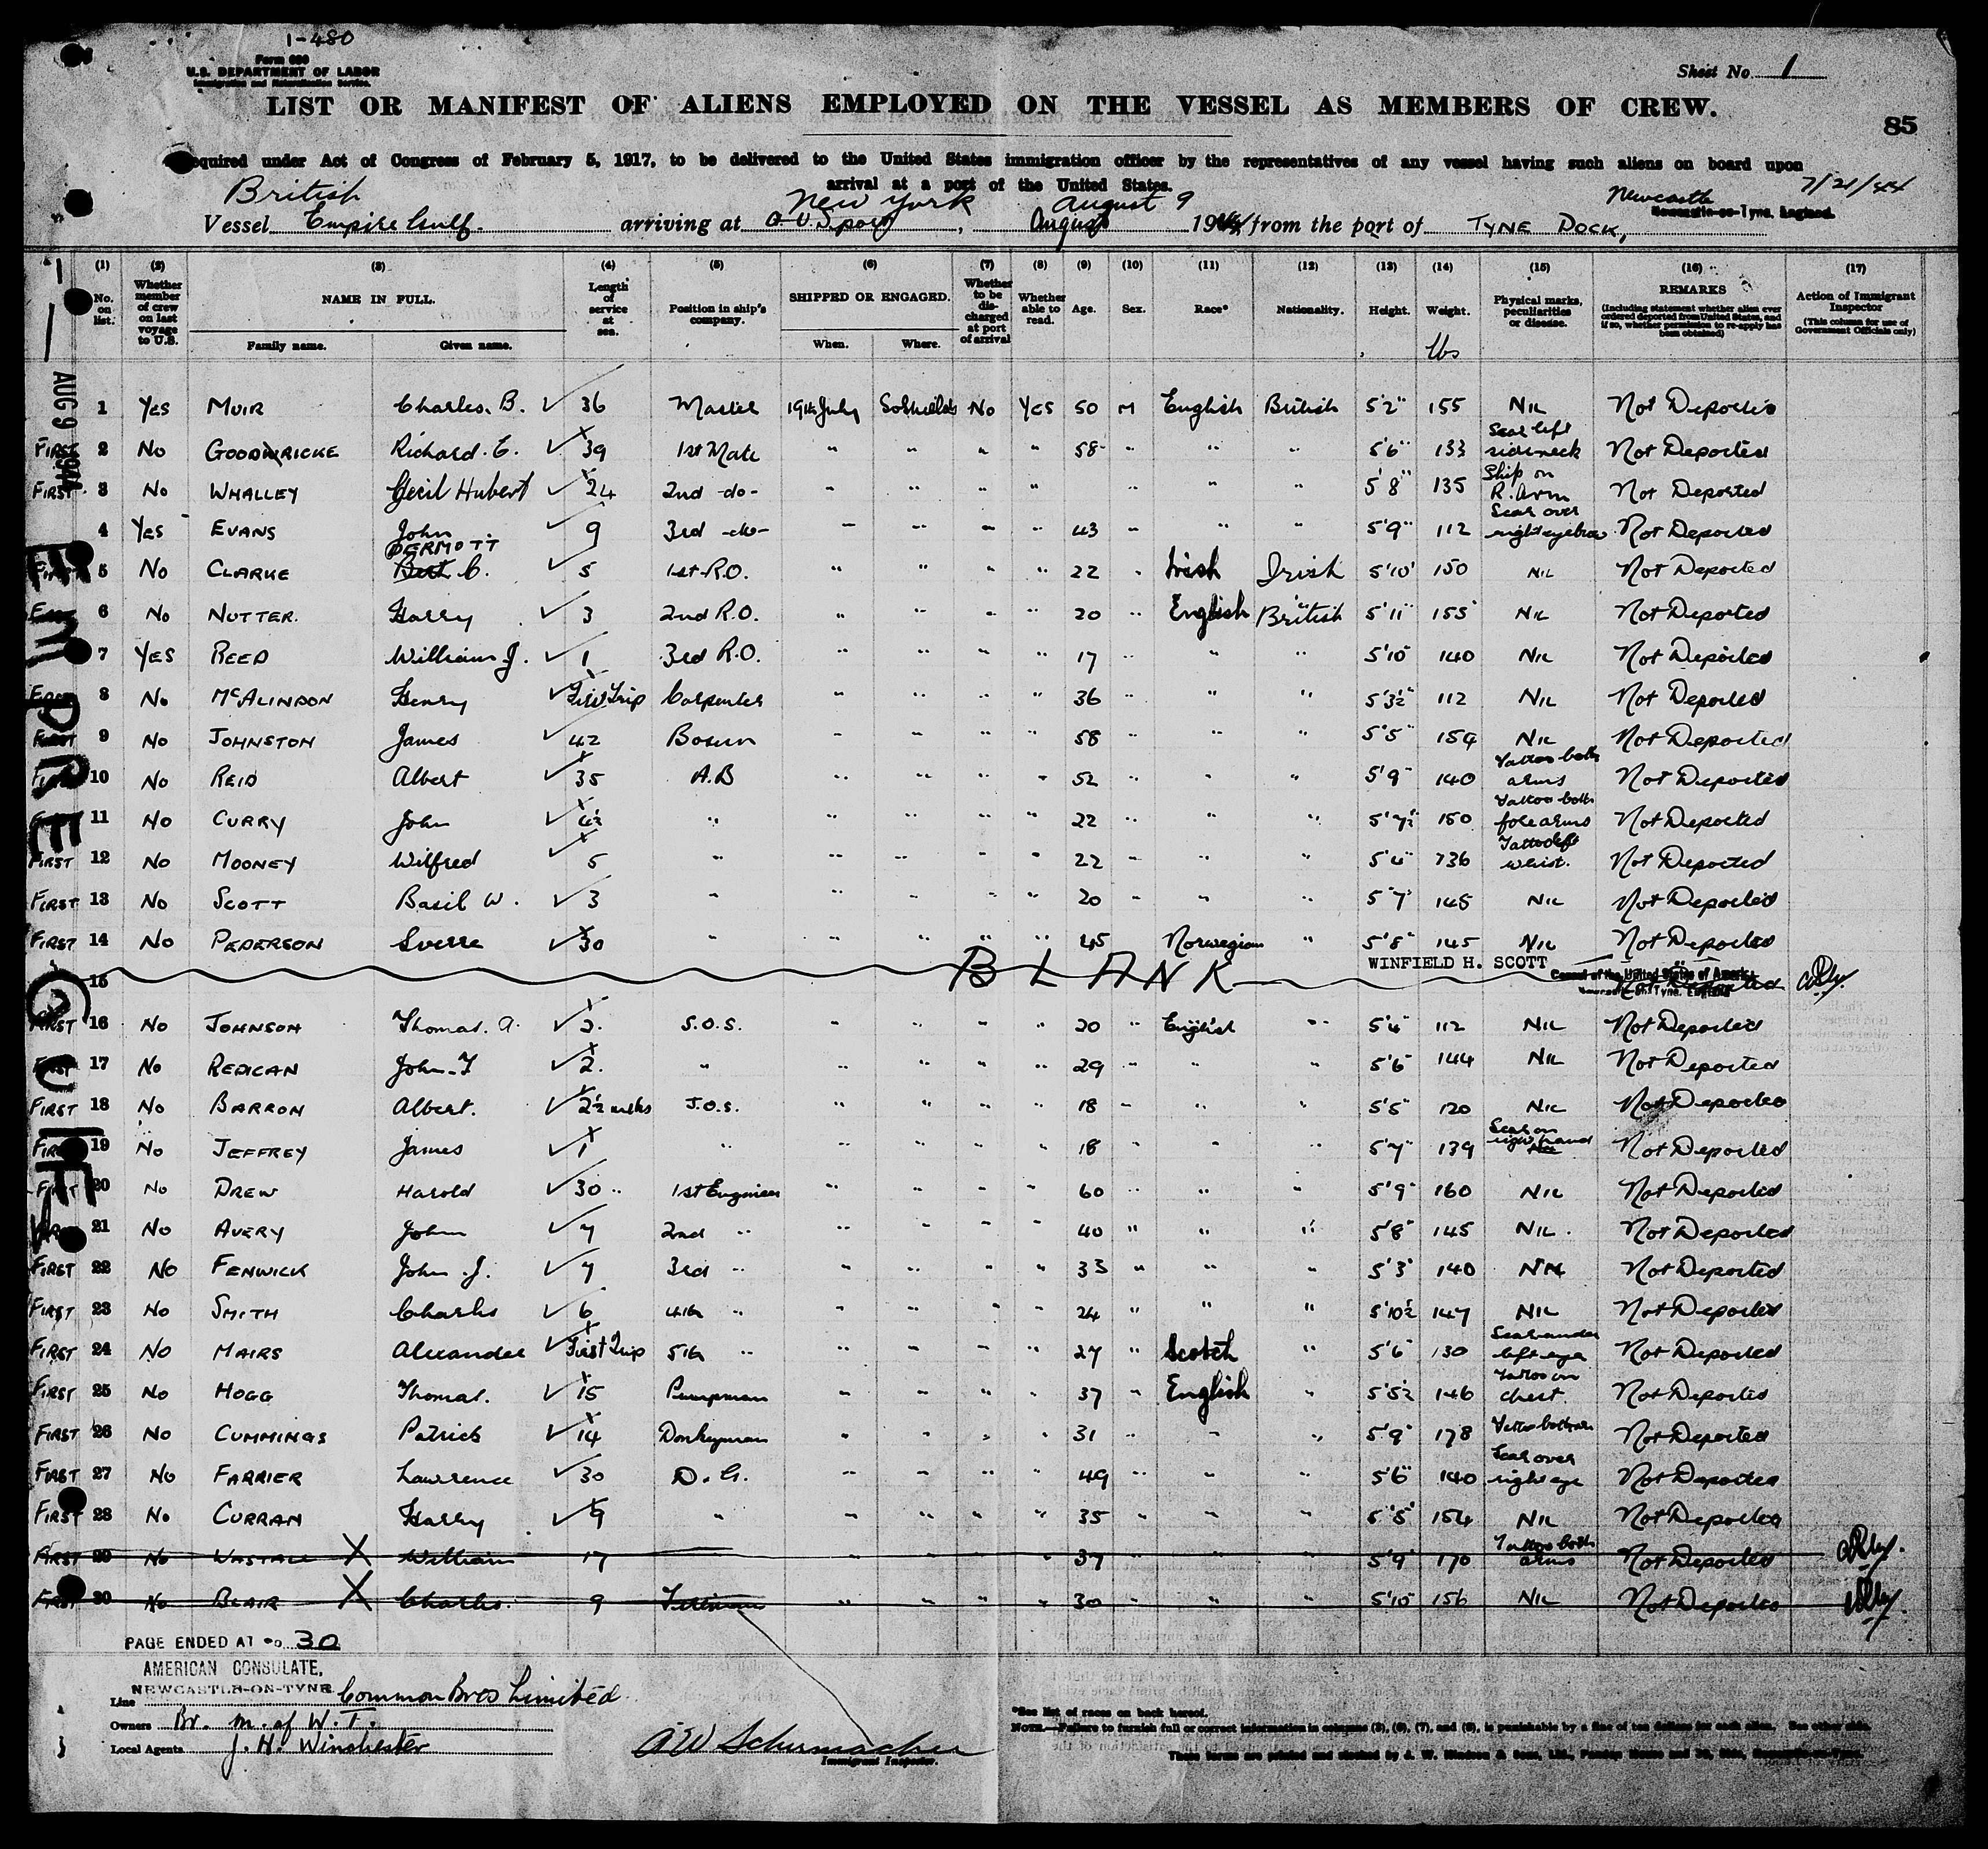 1-480
Form 680
U.S. DEPARTMENT OF LABOR
Immigration and Naturalization Service.
Sheet No. 1
LIST OR MANIFEST OF ALIENS EMPLOYED ON THE VESSEL AS MEMBERS OF CREW.
85
equired under Act of Congress of February 5, 1917, to be delivered to the United States immigration officer by the representatives of any vessel having such aliens on board upon
arrival at a port of the United States.
British New York August 9 Newcastle 7/21/44
Newcastle-on-Tyne, England.
Vessel Empire Gulf. arriving at a U.S. port, August 1944 from the port of TYNE DOCK,
(1) (2) (3) (4) (5) (6) (7) (8) (9) (10) (11) (12) (13) (14) (15) (16) (17)
No. on list. Whether member of crew on last voyage to U.S. NAME IN FULL. Family name. Given name. Length of service at sea. Position in ship's company. SHIPPED OR ENGAGED. When. Where. Whether to be discharged at port of arrival Whether able to read. Age. Sex. Race* Nationality. Height. Weight. lbs Physical marks, peculiarities or disease. REMARKS (Including statement whether alien ever ordered deported from United States, and if so, whether permission to re-apply has been obtained) Action of Immigrant Inspector (This column for use of Government Officials only)
AUG 9 1944
1 Yes MUIR Charles. B. 36 Master 19th July SoShields No Yes 50 M English British 5'2" 155 NIL Not Deported
FIRST 2 No GOODWRICKE Richard. E. 39 1st Mate " " " " 58 " " " 5'6" 133 Scar left side neck Not Deported
FIRST 3 No WHALLEY Cecil Hubert 24 2nd -do- " " " " " " " 5'8" 135 Ship on R. Arm Not Deported
4 Yes EVANS John 9 3rd -do- " " " " 43 " " " 5'9" 112 Scar over right eyebrow Not Deported
FIRST 5 No CLARKE DERMOTT Bert C. 5 1st R.O. " " " " 22 " Irish Irish 5'10" 150 NIL Not Deported
6 No NUTTER. Harry 3 2nd R.O. " " " " 20 " English British 5'11" 155 NIL Not Deported
7 YES REED William J. 1 3rd R.O. " " " " 17 " " " 5'10" 140 NIL Not Deported
8 No McALINDON Henry First Trip Carpenter " " " " 36 " " " 5'3½" 112 NIL Not Deported
FIRST 9 No JOHNSTON James 42 Bosun " " " " 58 " " " 5'5" 159 NIL Not Deported
FIRST 10 No REID Albert 35 A.B " " " " 52 " " " 5'9" 140 Tattoo both arms Not Deported
11 No CURRY John 4½ " " " " " 22 " " " 5'7½" 150 Tattoo both forearms Not Deported
FIRST 12 No MOONEY Wilfred 5 " " " " " 22 " " " 5'4" 136 Tattoo left wrist. Not Deported
FIRST 13 No SCOTT Basil W. 3 " " " " " 20 " " " 5'7" 145 NIL Not Deported
FIRST 14 No PEDERSON Sverre 30 " " " " " 45 Norwegian " 5'8" 145 NIL Not Deported
15 BLANK WINFIELD H. SCOTT Consul of the United States of America Newcastle-on-Tyne, England Not Deported
FIRST 16 No JOHNSON Thomas. A. 2. S.O.S. " " " " 20 " English " 5'4" 112 NIL Not Deported
FIRST 17 No REDICAN John. F 2. " " " " " 29 " " " 5'6" 144 NIL Not Deported
FIRST 18 No BARRON Albert. 2½ mths J.O.S. " " " " 18 " " " 5'5" 120 NIL Not Deported
FIRST 19 No JEFFREY James 1 " " " " " 18 " " " 5'7" 139 Scar on right hand Not Deported
FIRST 20 No DREW Harold 30 " 1st Engineer " " " " 60 " " " 5'9" 160 NIL Not Deported
21 No AVERY John 7 2nd " " " " " 40 " " " 5'8" 145 NIL. Not Deported
FIRST 22 No FENWICK John. J. 7 3rd " " " " " 33 " " " 5'3" 140 NIL Not Deported
FIRST 23 No SMITH Charles 6 4th " " " " " 24 " " " 5'10½ 147 NIL Not Deported
FIRST 24 No MAIRS Alexander First Trip 5th " " " " " 27 " Scotch " 5'6" 130 Scar under left eye Not Deported
FIRST 25 No HOGG Thomas. 15 Pumpman " " " " 37 " English " 5'5½ 146 Tattoo on chest. Not Deported
FIRST 26 No CUMMINGS Patrick 14 Donkeyman " " " " 31 " " " 5'9" 178 Tattoo both arms Not Deported
FIRST 27 No FARRIER Lawrence 30 D.G. " " " " 49 " " " 5'6" 140 Scar over right eye Not Deported
FIRST 28 No CURRAN Harry 9 " " " " " 35 " " " 5'5" 154 NIL Not Deported
FIRST 29 No WASTALL X William 17 " " " " 37 " " " 5'9" 170 Tattoo both arms Not Deported
FIRST 30 No BLAIR X Charles. 9 Fireman " " " " 30 " " " 5'10" 156 NIL Not Deported
PAGE ENDED AT No. 30
AMERICAN CONSULATE,
NEWCASTLE-ON-TYNE
Line Common Bros Limited
Owners Br. M. of W. T.
Local Agents J. H. Winchester
A W Schumacher
Immigrant Inspector.
*See list of races on back hereof.
NOTE.—Failure to furnish full or correct information in columns (3), (6), (7), and (8), is punishable by a fine of ten dollars for each alien. See other side.